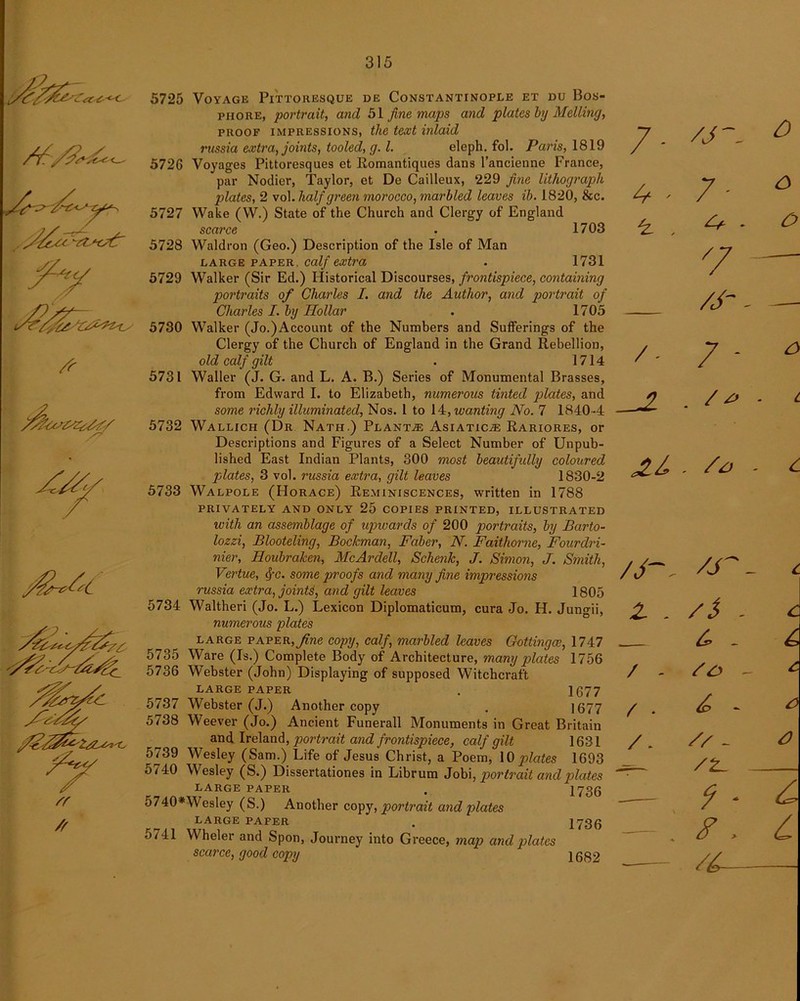 315
5725 VOYAGE PITTORESQUE DE CONSTANTINOPLE ET DU BOS-
PHORE, portrait, and 51 fine maps and plates by Melling,
PROOF IMPRESSIONS, the text inlaid
russia extra, joints, tooled, g. l. eleph. fol. Paris, 1819
7 - 15 - 0
5726 Voyages Pittoresques et Romantiques dans l'ancienne France,
par Nodier, Taylor, et De Cailleux, 229 fine lithograph
plates, 2 vol. half green morocco, marbled leaves ib. 1820, &c.
4 - 7 - 0
5727 Wake (W.) State of the Church and Clergy of England
scarce . 1703
4 - 0
5728 Waldron (Geo.) Description of the Isle of Man
LARGE PAPER. calf extra . 1731
17
5729 Walker (Sir Ed.) Historical Discourses, frontispiece, containing
portraits of Charles I. and the Author, and portrait of
Charles I. by Hollar . 1705
15 -
5730 Walker (Jo.) Account of the Numbers and Sufferings of the
Clergy of the Church of England in the Grand Rebellion,
old calf gilt . 1714
1 - 7 - 0
5731 Waller (J. G. and L. A. B.) Series of Monumental Brasses,
from Edward I. to Elizabeth, numerous tinted plates, and
some richly illuminated, Nos. 1 to 14, wanting No. 7 1840-4
10 -
5732 WALLICH (DR NATH.) PLANTÆ ASIATICÆ RARIORES, or
Descriptions and Figures of a Select Number of Unpub-
lished East Indian Plants, 300 most beautifully coloured
plates, 3 vol. russia extra, gilt leaves 1830-2
10 -
5733 WALPOLE (HORACE) REMINISCENCES, written in 1788
PRIVATELY AND ONLY 25 COPIES PRINTED, ILLUSTRATED
with an assemblage of upwards of 200 portraits, by Barto-
lozzi, Blooteling, Bockman, Faber, N. Faithorne, Fourdri-
nier, Houbraken, McArdell, Schenk, J. Simon, J. Smith,
Vertue, &c. some proofs and many fine impressions
russia extra, joints, and gilt leaves 1805
15 - 15 -
5734 Waltheri (Jo. L.) Lexicon Diplomaticum, cura Jo. H. Jungii,
numerous plates
LARGE PAPER, fine copy, calf, marbled leaves Gottingæ, 1747
2 - 13 -
5735 Ware (Is.) Complete Body of Architecture, many plates 1756
6 - 6
5736 Webster (John) Displaying of supposed Witchcraft
LARGE PAPER . 1677
1 - 10 -
5737 Webster (J.) Another copy . 1677
1 . 6 - 0
5738 Weever (Jo.) Ancient Funerall Monuments in Great Britain
and Ireland, portrait and frontispiece, calf gilt 1631
1 . 11 - 0
5739 Wesley (Sam.) Life of Jesus Christ, a Poem, 10 plates 1693
12
5740 Wesley (S.) Dissertationes in Librum Jobi, portrait and plates
LARGE PAPER . 1736
9 - 6
5740*Wesley (S.) Another copy, portrait and plates
LARGE PAPER . 1736
8 . 6
5741 Wheler and Spon, Journey into Greece, map and plates
scarce, good copy 1682
16